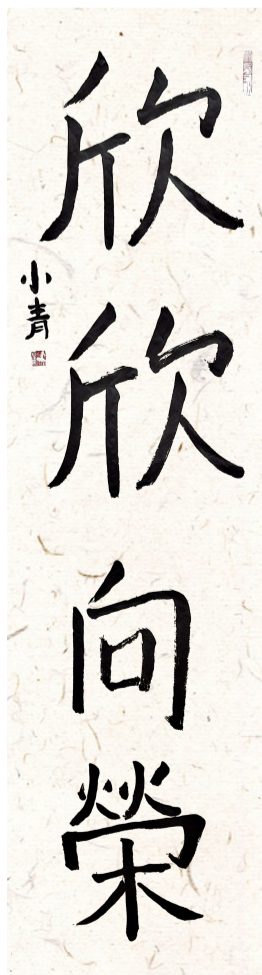 欣欣向榮
小青